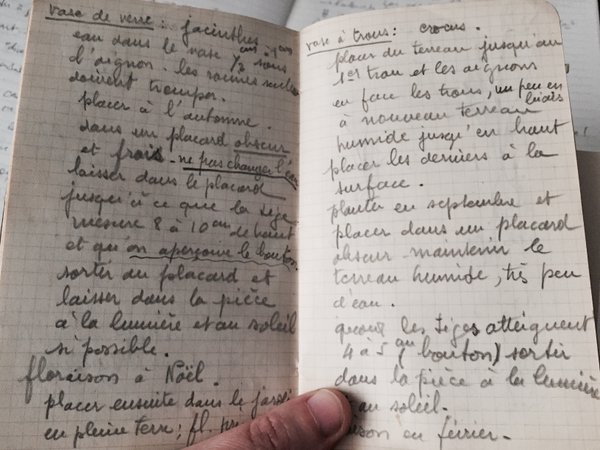 vase de verre : jacinthes
eau dans le vase 1/2 cm sous
l'oignon. les racines seules
doivent tremper.
placer à l'automne.
dans un placard obscur
et frais. ne pas changer l'eau
laisser dans le placard
jusqu'à ce que la tige
mesure 8 à 10 cm de haut
et qu'on aperçoive le bouton.
sortir du placard et
laisser dans la pièce
à la lumière et au soleil
si possible.
floraison à Noël.
placer ensuite dans le jardin
en pleine terre; fl.
vase à trous : crocus.
placer du terreau jusqu'au
1er trou et les oignons
en face les trous, un peu en
biais
à nouveau terreau
humide jusqu'en haut
placer les derniers à la
surface.
planter en septembre et
placer dans un placard
obscur maintenir le
terreau humide, très peu
d'eau.
quand les tiges atteignent
4 à 5 cm (bouton) sortir
dans la pièce à la lumière
au soleil.
ison en février.